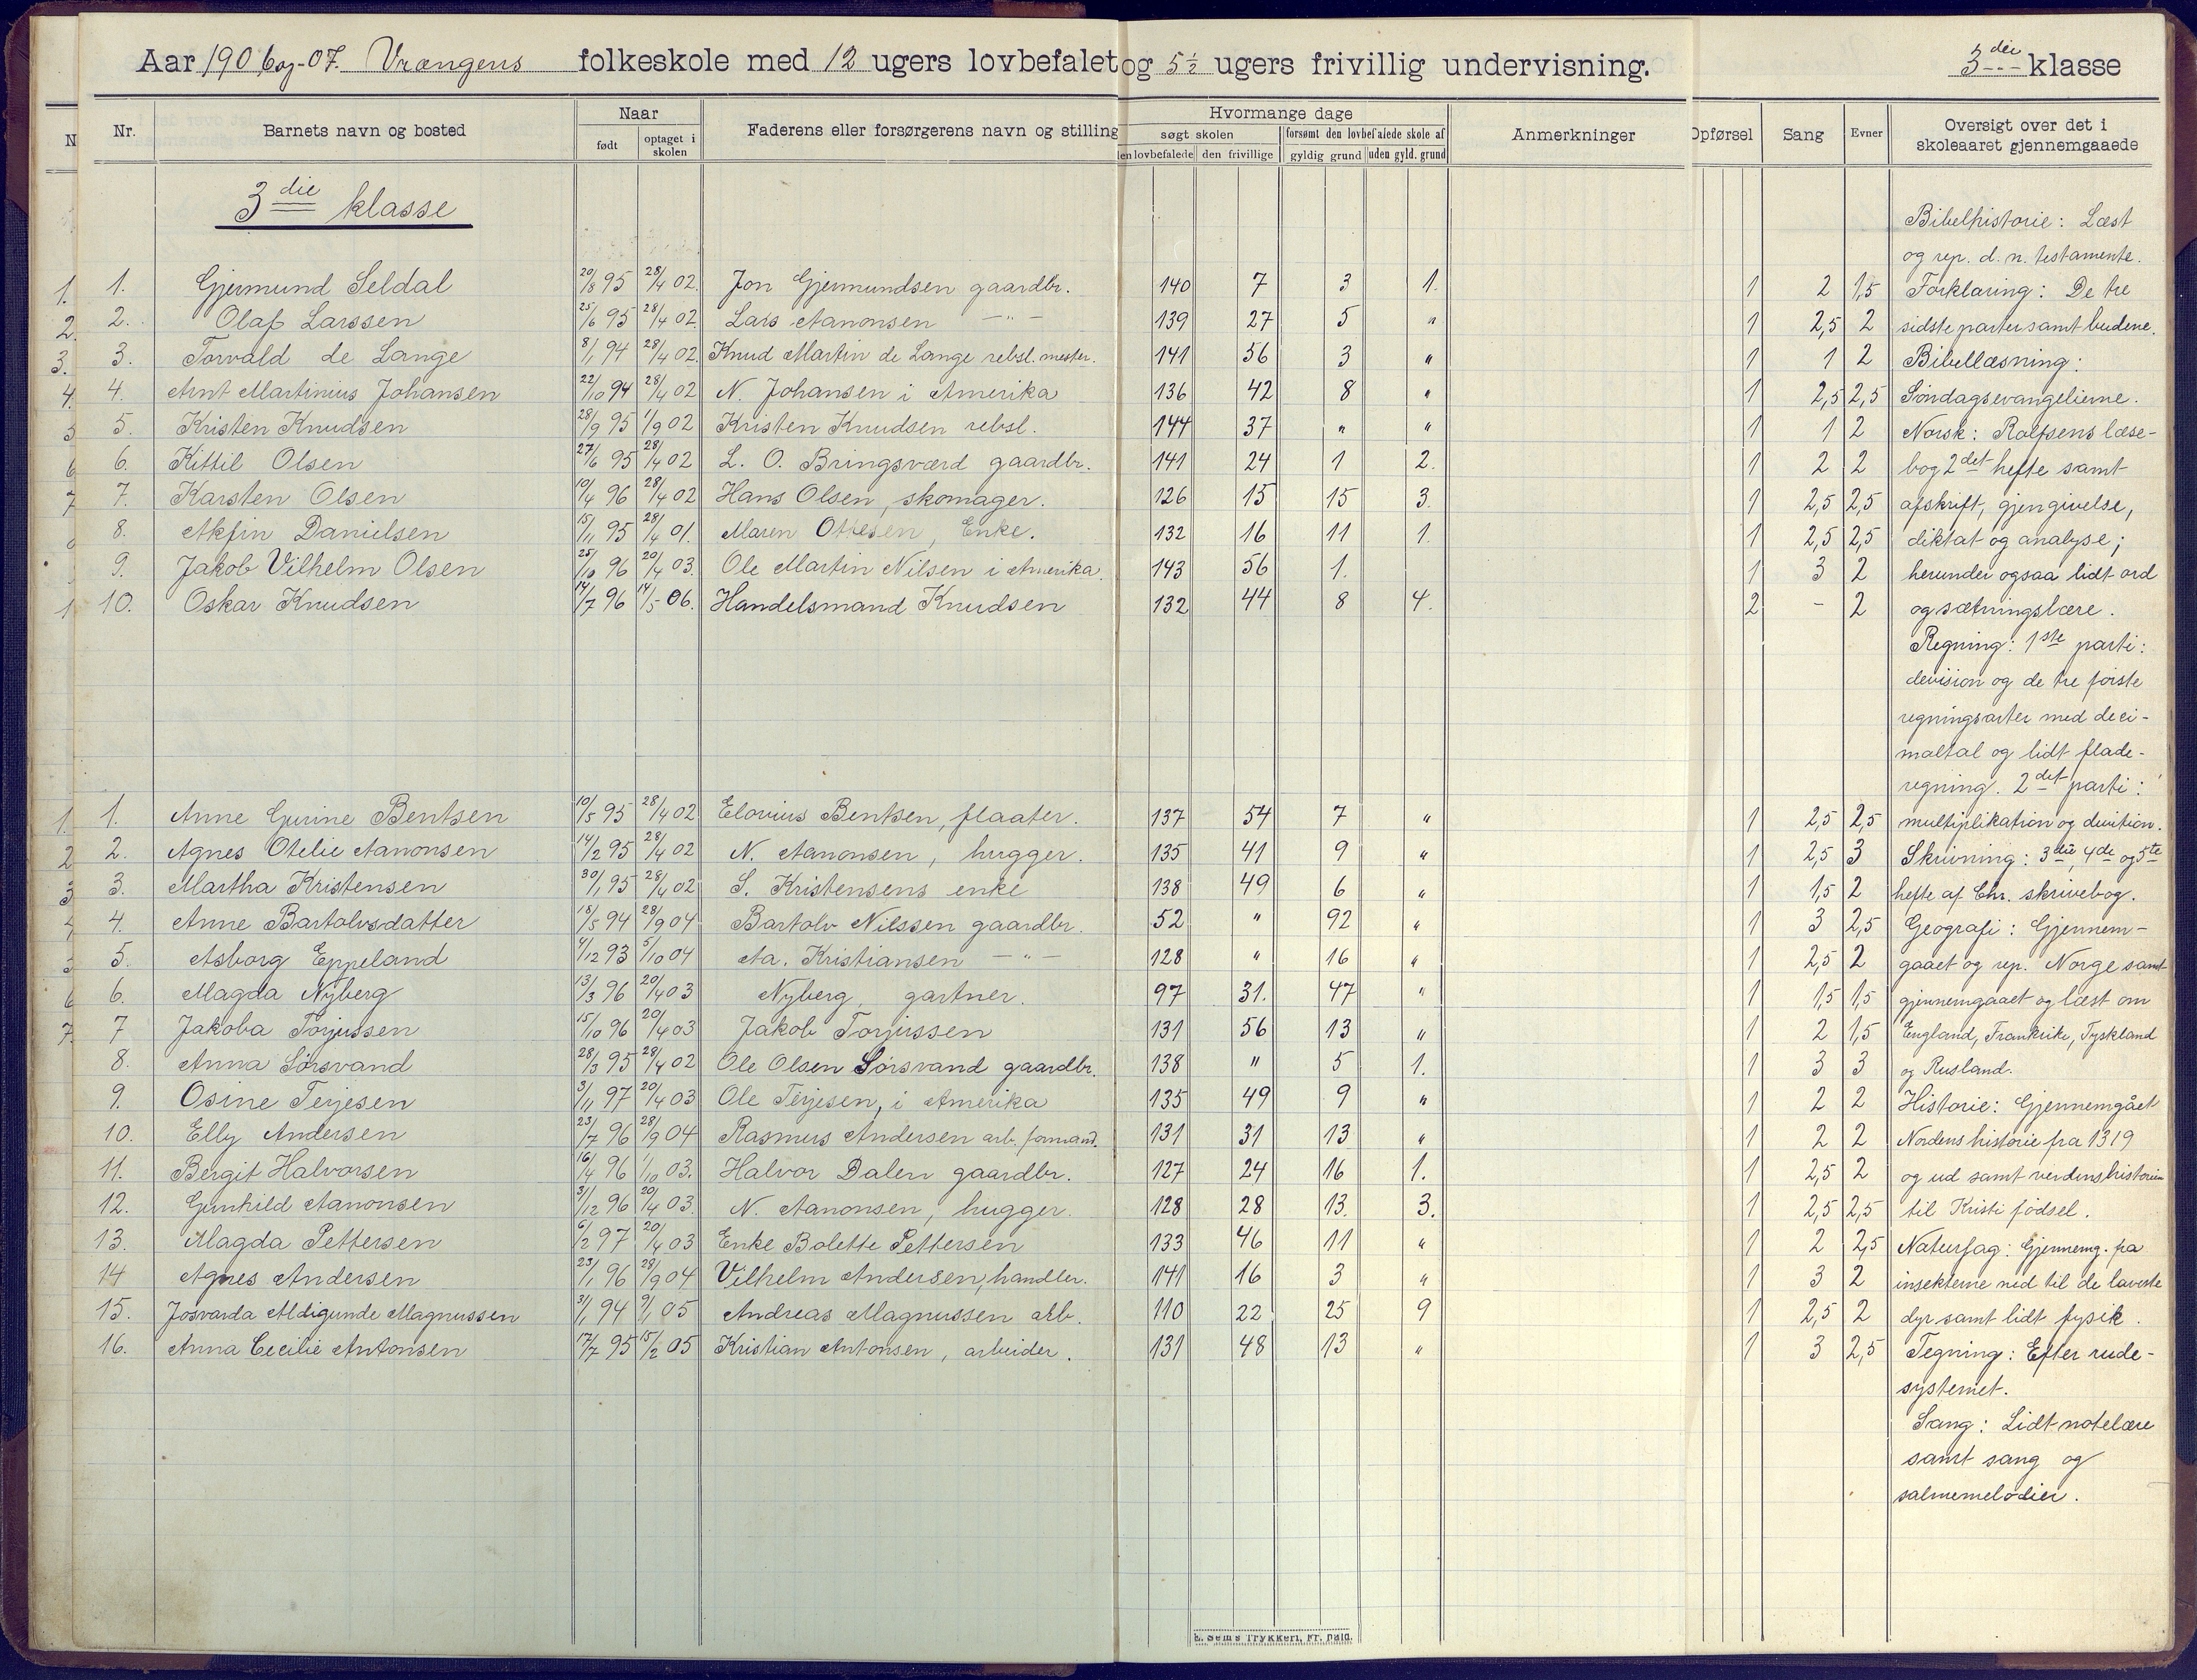 Aar 1906 og -07. Vrængens folkeskole med 12 ugers lovbefalet og 5½ ugers frivillig undervisning. 3die klasse
Nr. Barnets navn og bosted Naar Faderens eller forsørgerens navn og stilling Hvormange dage Anmerkninger Opførsel Sang Evner Oversigt over det i skoleaaret gjennemgaaede
født optaget i skolen søgt skolen forsømt den lovbefalede skole af
den lovbefalede den frivillige gyldig grund uden gyld. grund
3die klasse
Bibelhistorie: Læst
og rep. d. n. testamente.
1. 1. Gjermund Seldal 20/8 95 28/4 02. Jon Gjermundsen gaardbr. 140 7 3 1. 1 2 1,5 Forklaring: De tre
2. 2. Olaf Larssen 25/6 95 28/4 02. Lars Aanonsen —"— 139 27 5 " 1 2,5 2 sidste parter samt budene.
3. 3. Torvald de Lange 8/1 94 28/4 02. Knud Martin de Lange rebsl. mester. 141 56 3 " 1 1 2 Bibellæsning:
4. 4. Arnt Martinius Johansen 22/10 94 28/4 02 N. Johansen i Amerika 136 42 8 " 1 2,5 2,5 Søndagsevangelierne.
5 5. Kristen Knudsen 28/9 95 1/9 02 Kristen Knudsen rebsl. 144 37 " " 1 1 2 Norsk: Rolfsens læse-
6 6. Kittil Olsen 27/6 95 28/4 02 L. O. Bringsværd gaardbr. 141 24 1 2. 1 2 2 bog 2det hefte samt
7 7. Karsten Olsen 10/4 96 28/4 02 Hans Olsen, skomager. 126 15 15 3. 1 2,5 2,5 afskrift, gjengivelse,
8. Akfin Danielsen 15/11 95 28/4 01. Maren Ottesen, Enke. 132 16 11 1. 1 2,5 2,5 diktat og analyse;
9. Jakob Vilhelm Olsen 25/10 96 20/4 03. Ole Martin Nilsen i Amerika. 143 56 1. 1 3 2 herunder ogsaa lidt ord
1 10. Oskar Knudsen 14/7 96 14/5 06. Handelsmand Knudsen 132 44 8 4. 2 - 2 og sætningslære.
Regning: 1ste parti:
devision og de tre første
regningsarter med deci-
maltal og lidt flade-
regning. 2det parti:
1. 1. Anne Gurine Bentsen 10/5 95 28/4 02. Elovius Bentsen, flaater. 137 54 7 " 1 2,5 2,5 multiplikation og division.
2 2. Agnes Otelie Aanonsen 14/2 95 28/4 02 N. Aanonsen, hugger. 135 41 9 " 1 2,5 3 Skrivning: 3die, 4de og 5te
3 3. Martha Kristensen 30/1 95 28/4 02 S. Kristensens enke 138 49 6 " 1 1,5 2 hefte af Chr. skrivebog.
4 4. Anne Bartolvsdatter 18/5 94 28/9 04 Bartolv Nilssen gaardbr. 52 " 92 " 1 3 2,5 Geografi: Gjennem-
5 5. Asborg Eppeland 4/12 93 5/10 04 Aa. Kristiansen —"— 128 " 16 " 1 2,5 2 gaaet og rep. Norge samt
6 6. Magda Nyberg 13/3 96 20/4 03 Nyberg, gartner. 97 31. 47 " 1 1,5 1,5 gjennemgaaet og læst om
7. 7 Jakoba Torjussen 15/10 96 20/4 03 Jakob Torjussen 131 56 13 " 1 2 1,5 England, Frankrike, Tyskland
8. Anna Sørsvand 28/3 95 28/4 02 Ole Olsen Sørsvand gaardbr. 138 " 5 1. 1 3 3 og Rusland.
9. Osine Terjesen 3/11 97 20/4 03 Ole Terjesen, i Amerika 135 49 9 " 1 2 2 Historie: Gjennemgået
10. Elly Andersen 23/7 96 28/9 04 Rasmus Andersen arb. formand. 131 31 13 " 1 2 2 Nordens historie fra 1319
11. Bergit Halvorsen 16/4 96 1/10 03. Halvor Dalen gaardbr. 127 24 16 1. 1 2,5 2 og ud samt verdenshistorien
12. Gunhild Aanonsen 31/12 96 20/4 03. N. Aanonsen, hugger. 128 28 13. 3. 1 2,5 2,5 til Kristi fødsel.
13. Magda Pettersen 6/2 97 20/4 03 Enke Bolette Pettersen 133 46 11 " 1 2 2,5 Naturfag: Gjennemg. fra
14 Agnes Andersen 23/1 96 28/9 04 Vilhelm Andersen, handler. 141 16 3 " 1 3 2 insekterne ned til de laveste
15. Josvarda Aldigunde Magnussen 31/1 94 9/1 05 Andreas Magnussen arb. 110 22 25 9 1 2,5 2 dyr samt lidt fysik.
16. Anna Cecilie Antonsen 17/7 95 15/2 05 Kristian Antonsen, arbeider. 131 48 13 " 1 3 2,5 Tegning: Efter rude-
systemet.
Sang: Lidt notelære
samt sang og
salmemelodier.
E. Sem's Trykkeri, Fr.hald.